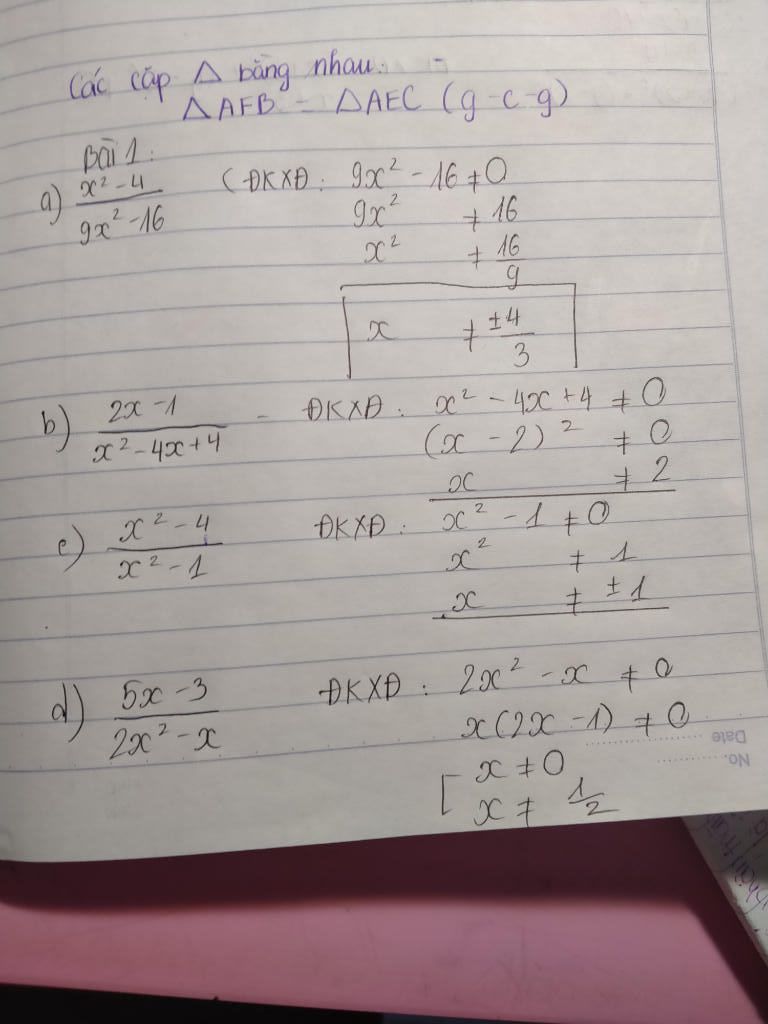 Các cặp Δ bằng nhau.
ΔAFB = ΔAEC (g-c-g)
Bài 1:
a) x² - 4 / 9x² - 16 (ĐKXĐ: 9x² - 16 ≠ 0
9x² ≠ 16
x² ≠ 16/9
x ≠ ±4/3
b) 2x - 1 / x² - 4x + 4 - ĐKXĐ: x² - 4x + 4 ≠ 0
(x - 2)² ≠ 0
x ≠ 2
c) x² - 4 / x² - 1 ĐKXĐ: x² - 1 ≠ 0
x² ≠ 1
x ≠ ±1
d) 5x - 3 / 2x² - x ĐKXĐ: 2x² - x ≠ 0
x(2x - 1) ≠ 0
[ x ≠ 0
x ≠ 1/2
Date
No.